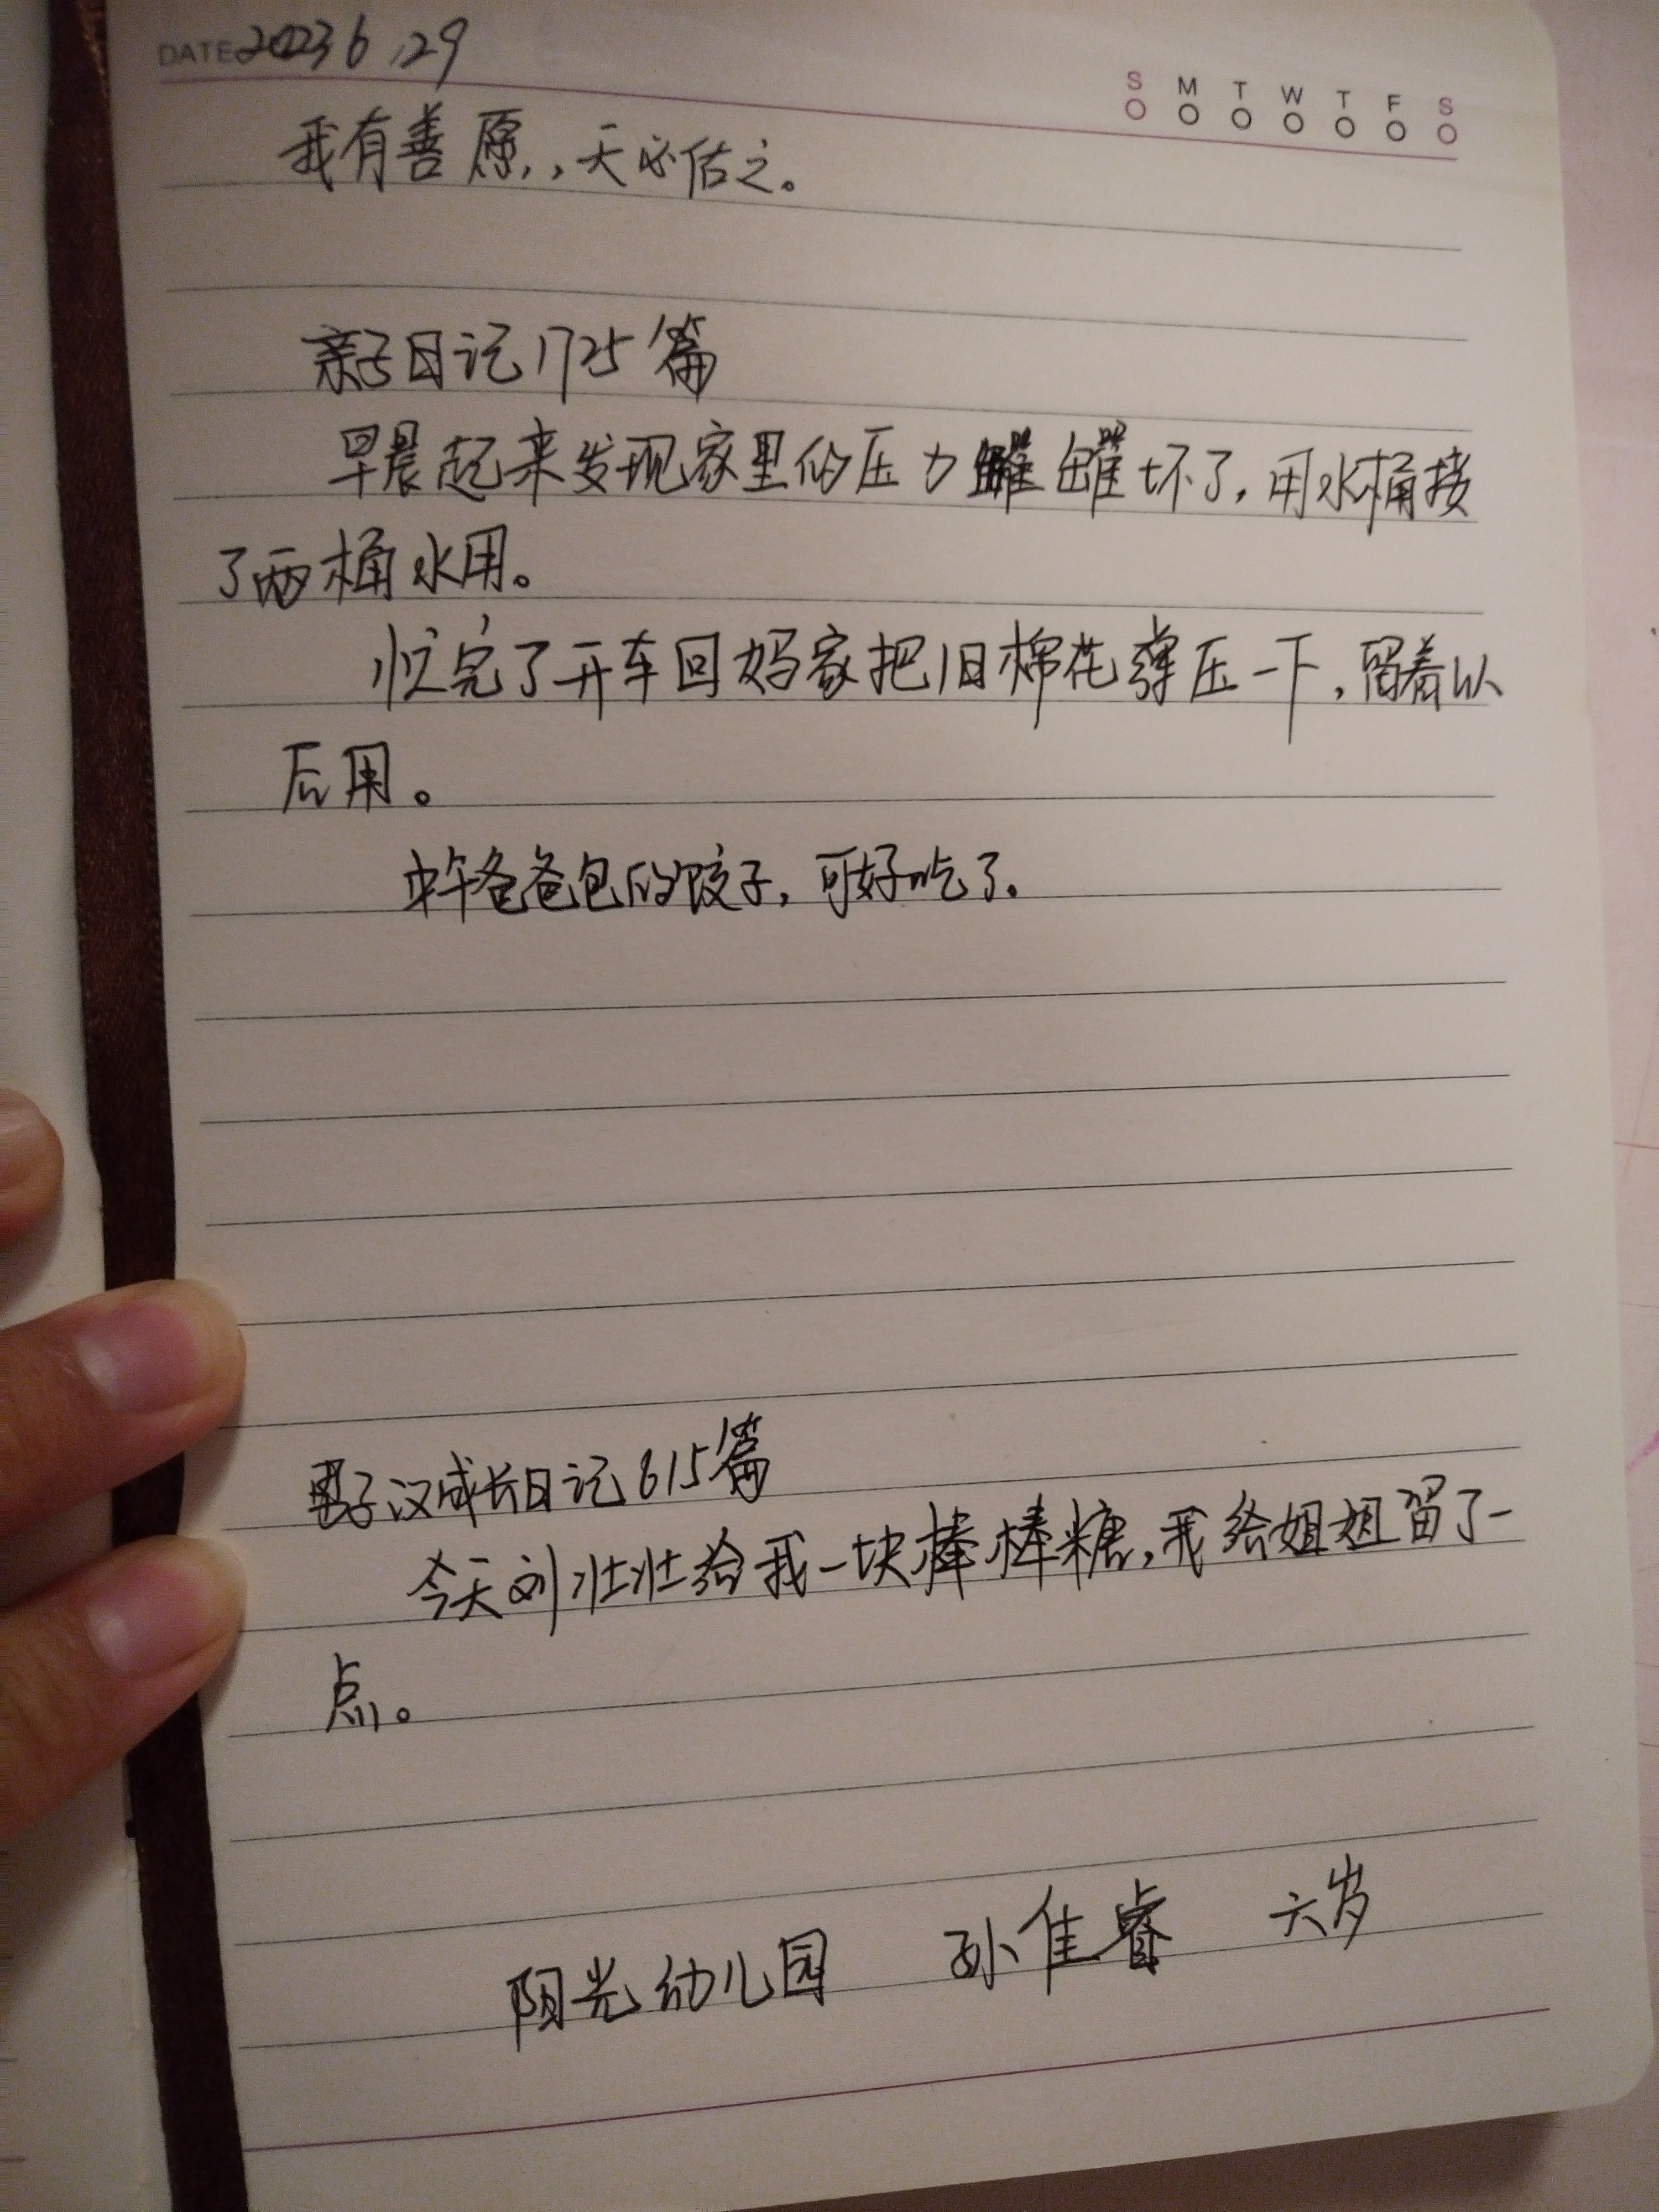 DATE 2023 6.29
S M T W T F S
我有善愿,,天必估之。
亲子日记1725篇
早晨起来发现家里的压力罐坏了,用水桶接
了两桶水用。
忙完了开车回妈家把旧棉花弹压一下,留着以
后用。
中午爸爸包的饺子,可好吃了。
男子汉成长日记615篇
今天刘壮壮给我一块棒棒糖,我给姐姐留了一
点。
阳光幼儿园 孙佳睿 六岁